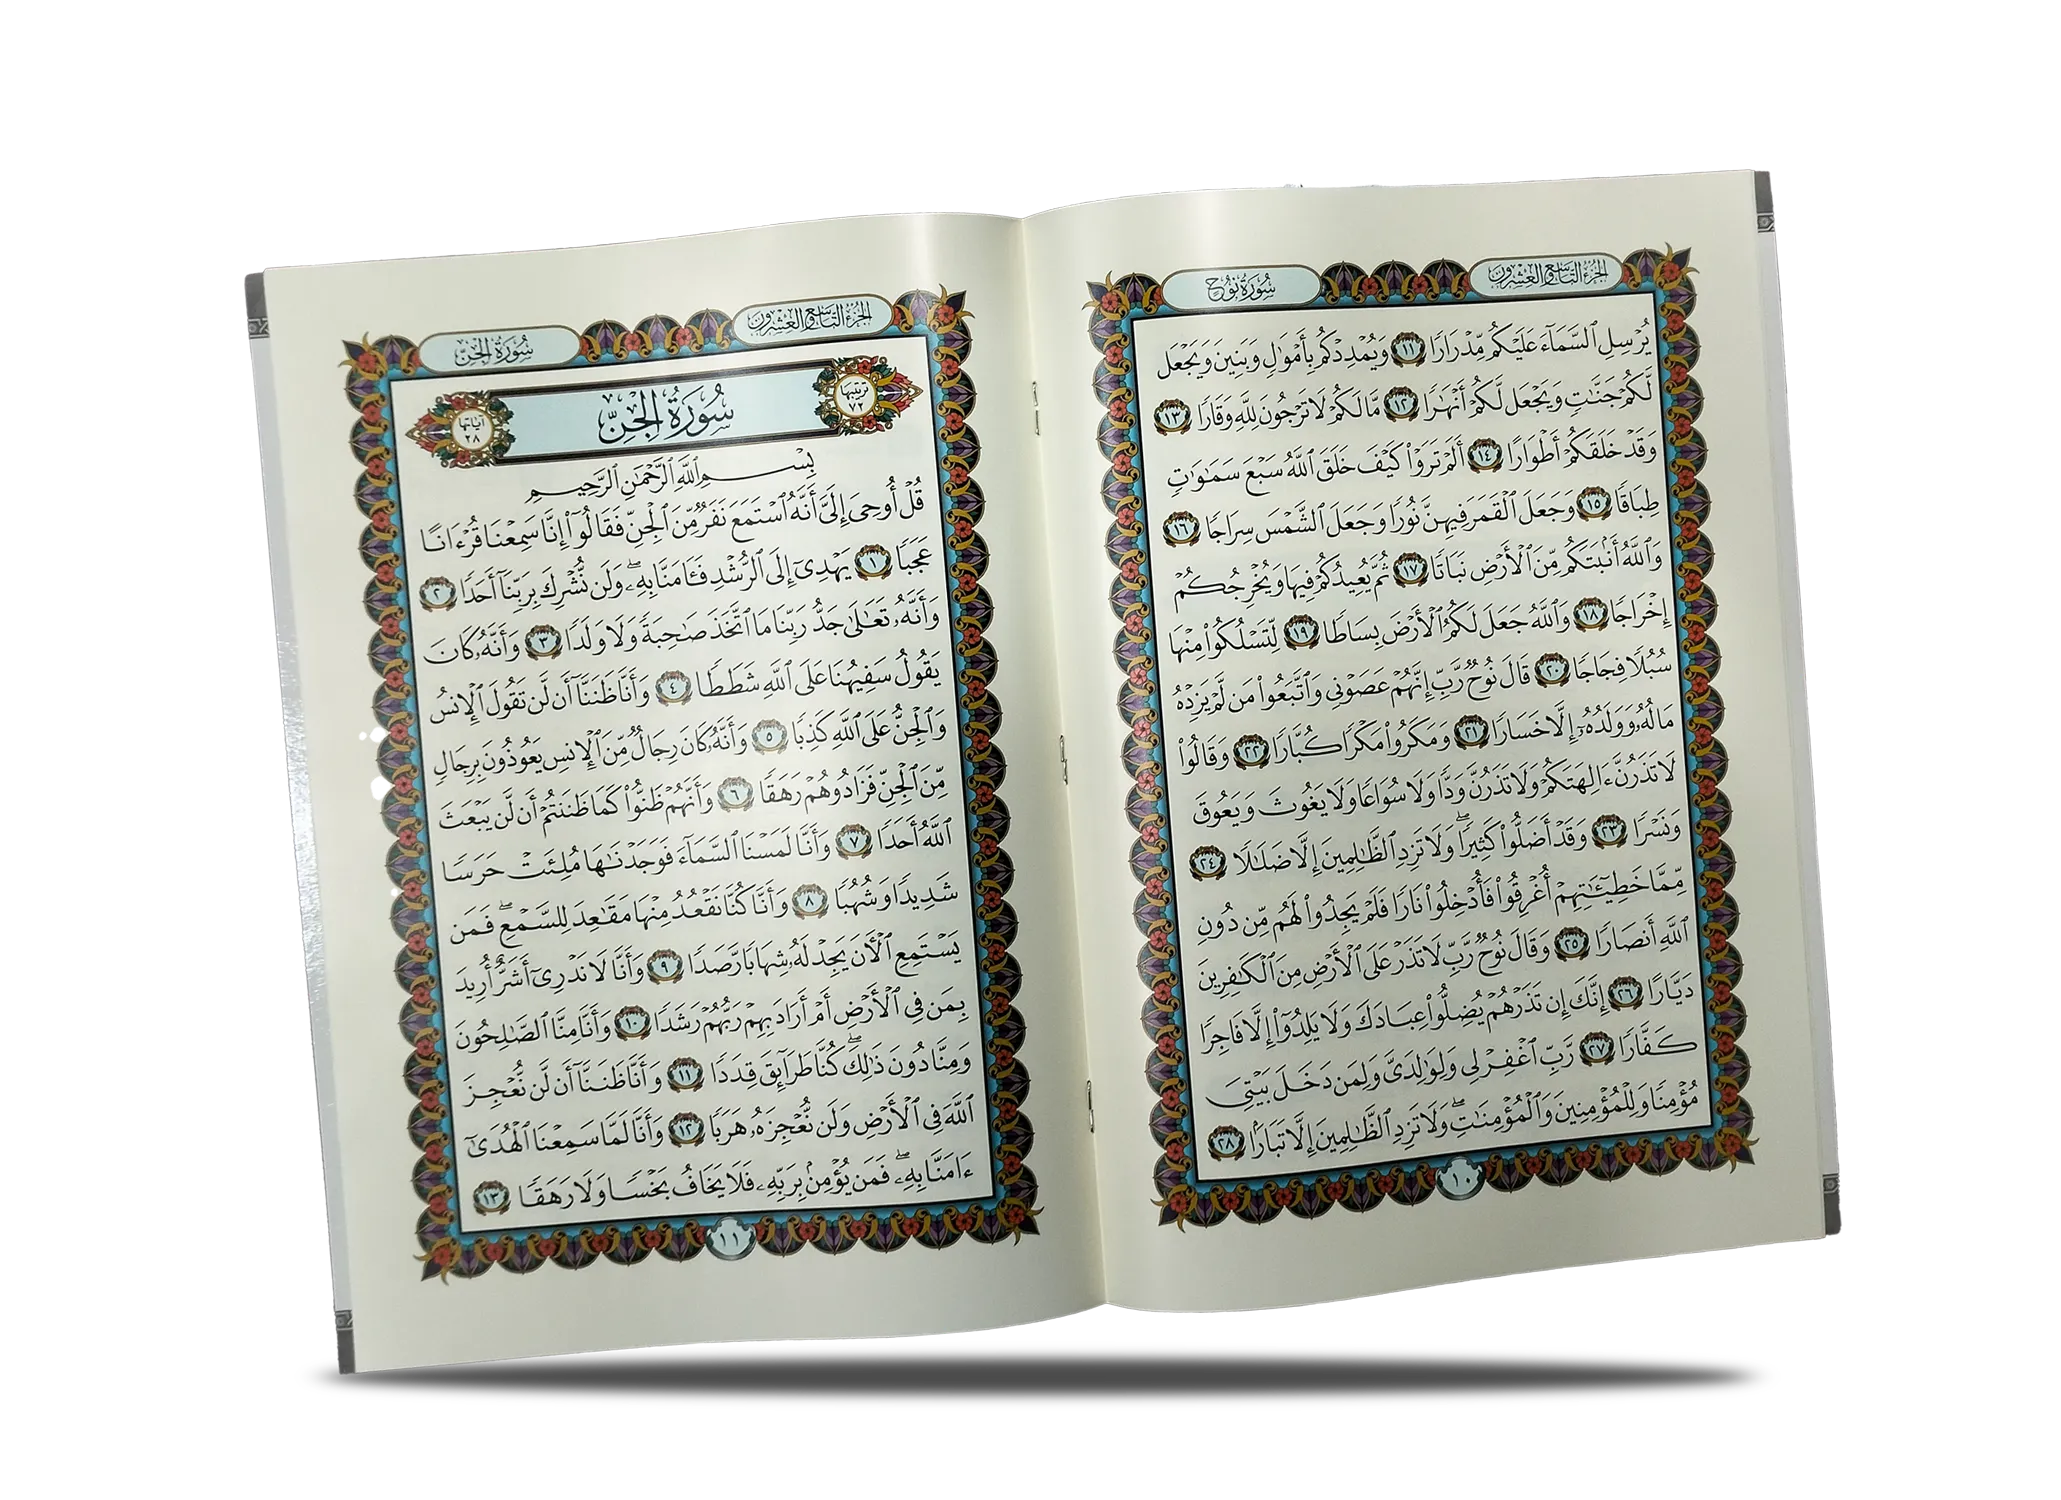 الجزء التاسع والعشرون
سورة نوح
يُرْسِلِ ٱلسَّمَآءَ عَلَيْكُم مِّدْرَارًا ١١ وَيُمْدِدْكُم بِأَمْوَٰلٍ وَبَنِينَ وَيَجْعَل
لَّكُمْ جَنَّٰتٍ وَيَجْعَل لَّكُمْ أَنْهَٰرًا ١٢ مَّا لَكُمْ لَا تَرْجُونَ لِلَّهِ وَقَارًا ١٣
وَقَدْ خَلَقَكُمْ أَطْوَارًا ١٤ أَلَمْ تَرَوْا۟ كَيْفَ خَلَقَ ٱللَّهُ سَبْعَ سَمَٰوَٰتٍ
طِبَاقًا ١٥ وَجَعَلَ ٱلْقَمَرَ فِيهِنَّ نُورًا وَجَعَلَ ٱلشَّمْسَ سِرَاجًا ١٦
وَٱللَّهُ أَنۢبَتَكُم مِّنَ ٱلْأَرْضِ نَبَاتًا ١٧ ثُمَّ يُعِيدُكُمْ فِيهَا وَيُخْرِجُكُمْ
إِخْرَاجًا ١٨ وَٱللَّهُ جَعَلَ لَكُمُ ٱلْأَرْضَ بِسَاطًا ١٩ لِّتَسْلُكُوا۟ مِنْهَا
سُبُلًا فِجَاجًا ٢٠ قَالَ نُوحٌ رَّبِّ إِنَّهُمْ عَصَوْنِى وَٱتَّبَعُوا۟ مَن لَّمْ يَزِدْهُ
مَالُهُۥ وَوَلَدُهُۥٓ إِلَّا خَسَارًا ٢١ وَمَكَرُوا۟ مَكْرًا كُبَّارًا ٢٢ وَقَالُوا۟
لَا تَذَرُنَّ ءَالِهَتَكُمْ وَلَا تَذَرُنَّ وَدًّا وَلَا سُوَاعًا وَلَا يَغُوثَ وَيَعُوقَ
وَنَسْرًا ٢٣ وَقَدْ أَضَلُّوا۟ كَثِيرًا ۖ وَلَا تَزِدِ ٱلظَّٰلِمِينَ إِلَّا ضَلَٰلًا ٢٤
مِّمَّا خَطِيٓـَٰٔتِهِمْ أُغْرِقُوا۟ فَأُدْخِلُوا۟ نَارًا فَلَمْ يَجِدُوا۟ لَهُم مِّن دُونِ
ٱللَّهِ أَنصَارًا ٢٥ وَقَالَ نُوحٌ رَّبِّ لَا تَذَرْ عَلَى ٱلْأَرْضِ مِنَ ٱلْكَٰفِرِينَ
دَيَّارًا ٢٦ إِنَّكَ إِن تَذَرْهُمْ يُضِلُّوا۟ عِبَادَكَ وَلَا يَلِدُوٓا۟ إِلَّا فَاجِرًا
كَفَّارًا ٢٧ رَّبِّ ٱغْفِرْ لِى وَلِوَٰلِدَىَّ وَلِمَن دَخَلَ بَيْتِىَ
مُؤْمِنًا وَلِلْمُؤْمِنِينَ وَٱلْمُؤْمِنَٰتِ ۖ وَلَا تَزِدِ ٱلظَّٰلِمِينَ إِلَّا تَبَارًۢا ٢٨
١٠
الجزء التاسع والعشرون
سورة الجن
ترتيبها ٧٢
سُورَةُ الجِنِّ
آياتها ٢٨
بِسْمِ ٱللَّهِ ٱلرَّحْمَٰنِ ٱلرَّحِيمِ
قُلْ أُوحِىَ إِلَىَّ أَنَّهُ ٱسْتَمَعَ نَفَرٌ مِّنَ ٱلْجِنِّ فَقَالُوٓا۟ إِنَّا سَمِعْنَا قُرْءَانًا
عَجَبًا ١ يَهْدِىٓ إِلَى ٱلرُّشْدِ فَـَٔامَنَّا بِهِۦ ۖ وَلَن نُّشْرِكَ بِرَبِّنَآ أَحَدًا ٢
وَأَنَّهُۥ تَعَٰلَىٰ جَدُّ رَبِّنَا مَا ٱتَّخَذَ صَٰحِبَةً وَلَا وَلَدًا ٣ وَأَنَّهُۥ كَانَ
يَقُولُ سَفِيهُنَا عَلَى ٱللَّهِ شَطَطًا ٤ وَأَنَّا ظَنَنَّآ أَن لَّن تَقُولَ ٱلْإِنسُ
وَٱلْجِنُّ عَلَى ٱللَّهِ كَذِبًا ٥ وَأَنَّهُۥ كَانَ رِجَالٌ مِّنَ ٱلْإِنسِ يَعُوذُونَ بِرِجَالٍ
مِّنَ ٱلْجِنِّ فَزَادُوهُمْ رَهَقًا ٦ وَأَنَّهُمْ ظَنُّوا۟ كَمَا ظَنَنتُمْ أَن لَّن يَبْعَثَ
ٱللَّهُ أَحَدًا ٧ وَأَنَّا لَمَسْنَا ٱلسَّمَآءَ فَوَجَدْنَٰهَا مُلِئَتْ حَرَسًا
شَدِيدًا وَشُهُبًا ٨ وَأَنَّا كُنَّا نَقْعُدُ مِنْهَا مَقَٰعِدَ لِلسَّمْعِ ۖ فَمَن
يَسْتَمِعِ ٱلْـَٔانَ يَجِدْ لَهُۥ شِهَابًا رَّصَدًا ٩ وَأَنَّا لَا نَدْرِىٓ أَشَرٌّ أُرِيدَ
بِمَن فِى ٱلْأَرْضِ أَمْ أَرَادَ بِهِمْ رَبُّهُمْ رَشَدًا ١٠ وَأَنَّا مِنَّا ٱلصَّٰلِحُونَ
وَمِنَّا دُونَ ذَٰلِكَ ۖ كُنَّا طَرَآئِقَ قِدَدًا ١١ وَأَنَّا ظَنَنَّآ أَن لَّن نُّعْجِزَ
ٱللَّهَ فِى ٱلْأَرْضِ وَلَن نُّعْجِزَهُۥ هَرَبًا ١٢ وَأَنَّا لَمَّا سَمِعْنَا ٱلْهُدَىٰٓ
ءَامَنَّا بِهِۦ ۖ فَمَن يُؤْمِنۢ بِرَبِّهِۦ فَلَا يَخَافُ بَخْسًا وَلَا رَهَقًا ١٣
١١